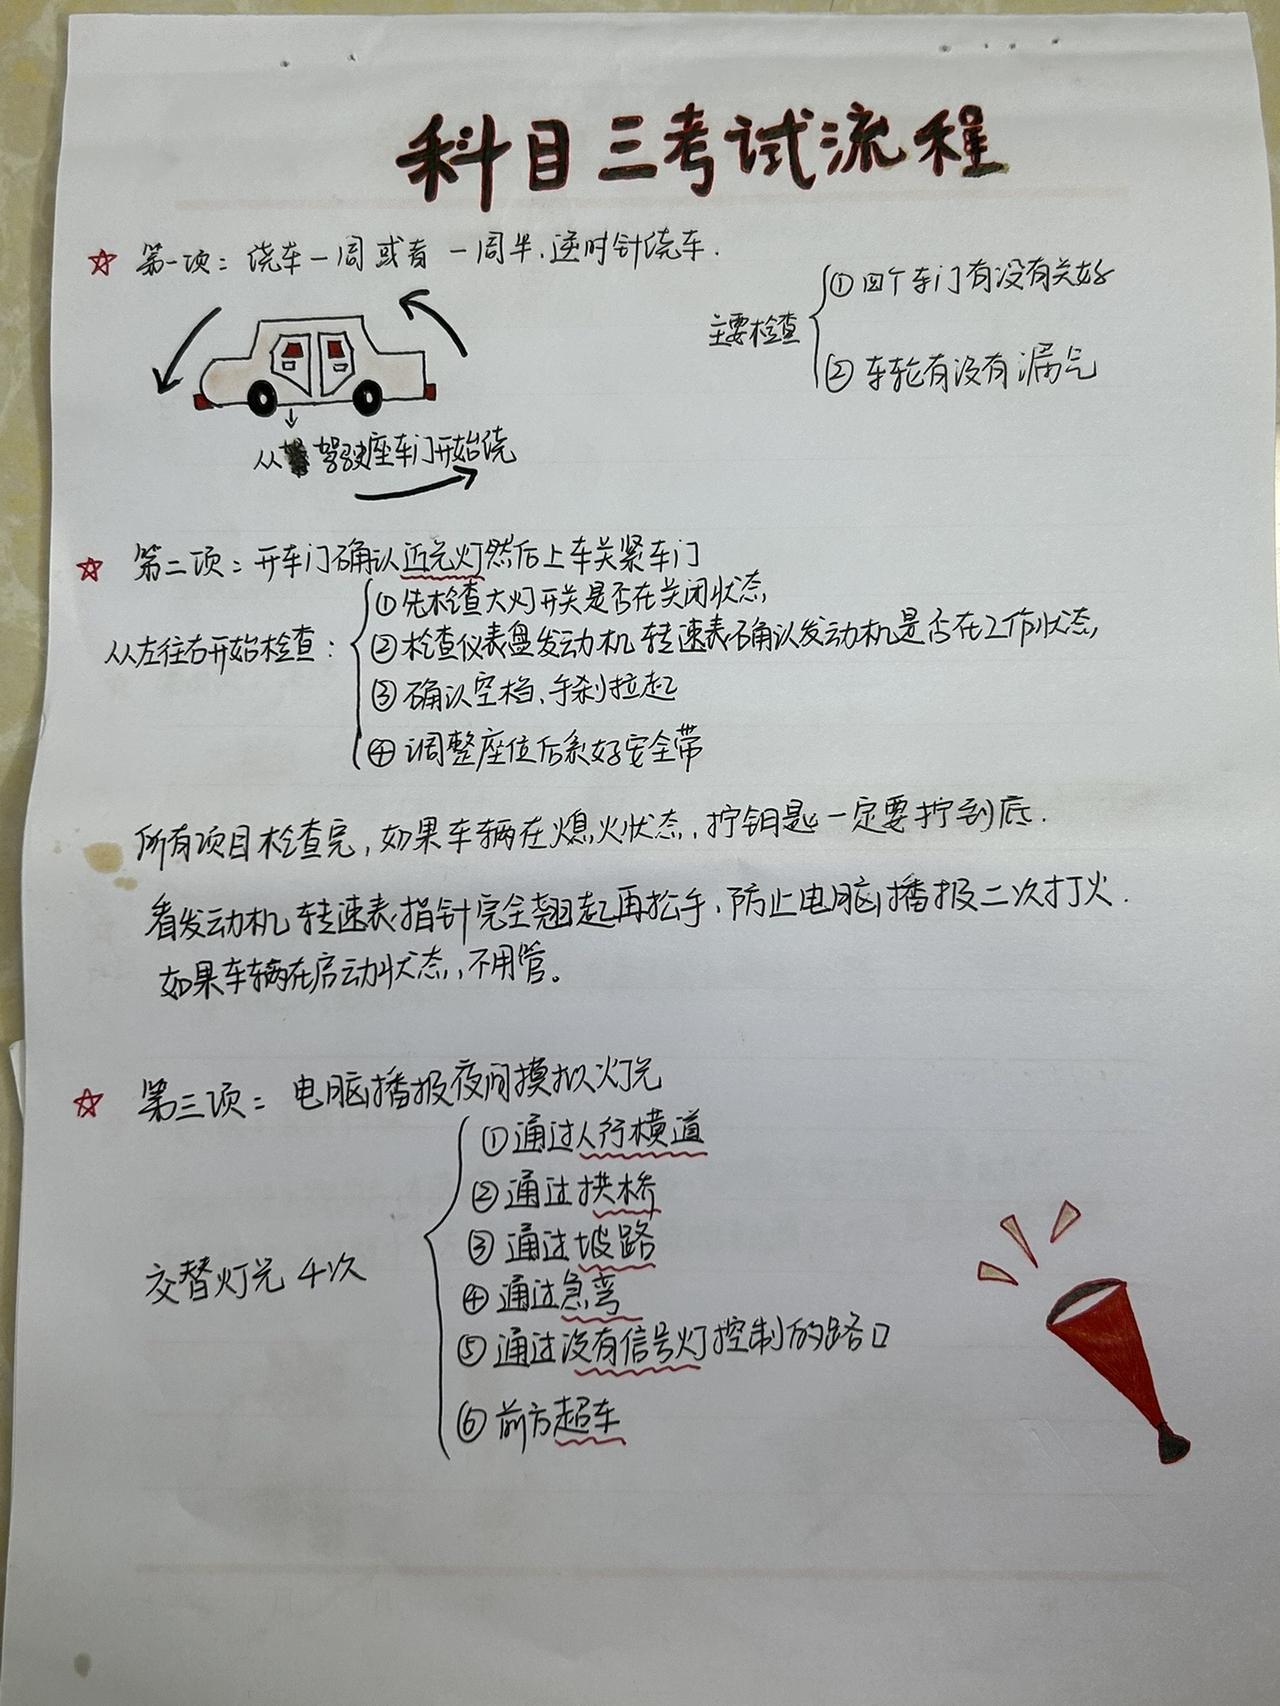 科目三考试流程
☆ 第一项：绕车一周或者一周半，逆时针绕车．
主要检查
①四个车门有没有关好
②车轮有没有漏气
从驾驶座车门开始绕
☆ 第二项：开车门确认近光灯然后上车关紧车门
从左往右开始检查：
①先检查大灯开关是否在关闭状态，
②检查仪表盘发动机转速表确认发动机是否在工作状态，
③确认空档、手刹拉起
④调整座位后系好安全带
所有项目检查完，如果车辆在熄火状态，拧钥匙一定要拧到底．
看发动机转速表指针完全翘起再松手，防止电脑播报二次打火．
如果车辆在启动状态，不用管。
☆ 第三项：电脑播报夜间摸拟灯光
交替灯光4次
①通过人行横道
②通过拱桥
③通过坡路
④通过急弯
⑤通过没有信号灯控制的路口
⑥前方超车